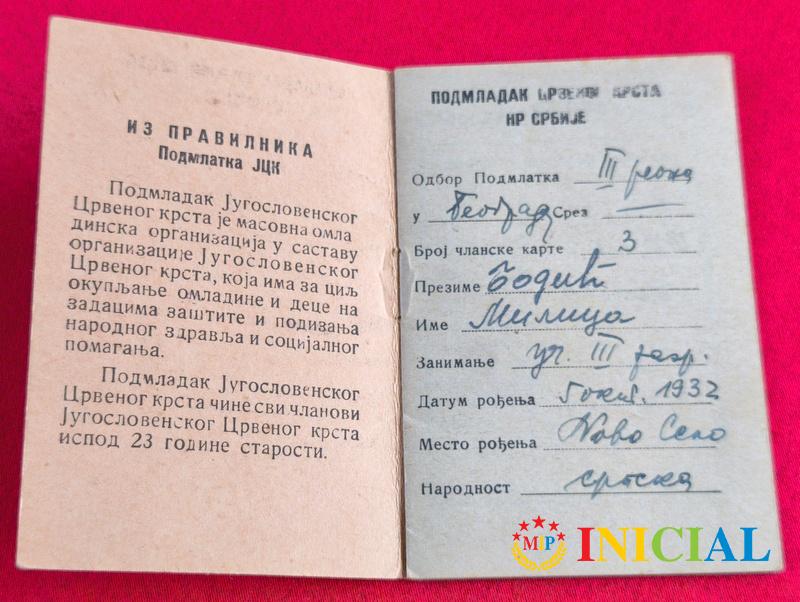 ИЗ ПРАВИЛНИКА
Подмлатка ЈЦК
Подмладак Југословенског
Црвеног крста је масовна омла
динска организација у саставу
организације Југословенског
Црвеног крста, која има за циљ
окупљање омладине и деце на
задацима заштите и подизања
народног здравља и социјалног
помагања.
Подмладак Југословенског
Црвеног крста чине сви чланови
Југословенског Црвеног крста
испод 23 године старости.
ПОДМЛАДАК ЦРВЕНОГ КРСТА
НР СРБИЈЕ
Одбор Подмлатка III реона
у Београд Срез —
Број чланске карте 3
Презиме Бодић
Име Милица
Занимање уч. III разр.
Датум рођења 5 окт. 1932
Место рођења Ново Село
Народност српска
MIP INICIAL